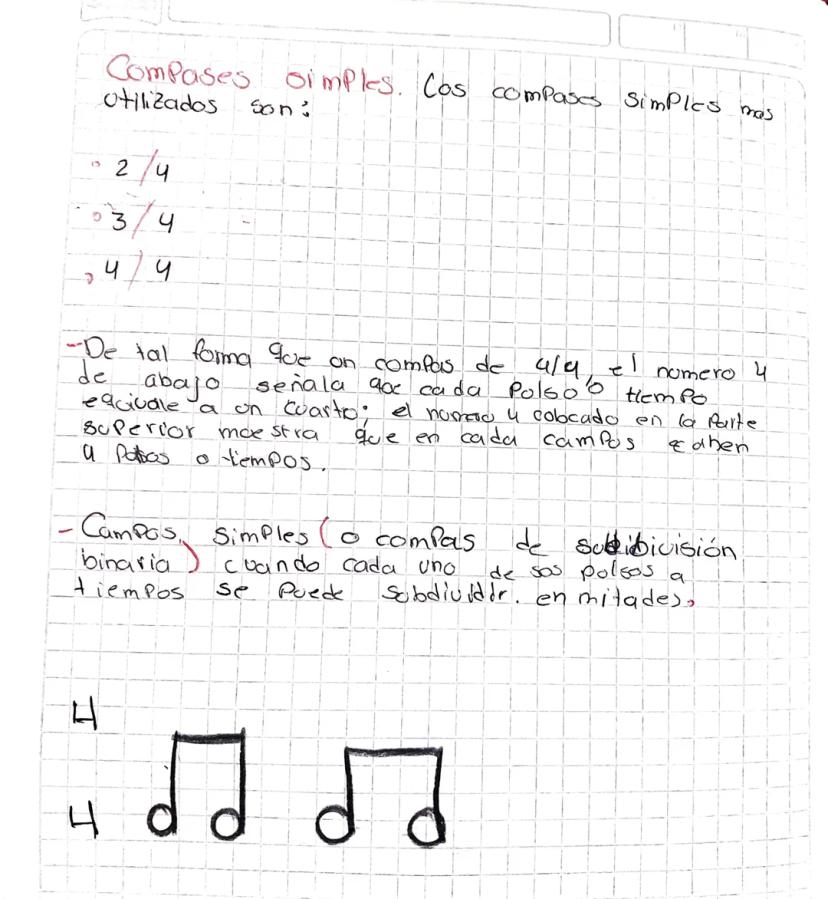 Compases simples. Cos compases simples mas
utilizados son:
2/4
3/4
4/4
-De tal forma que on compas de 4/4, el nomero 4
de abajo señala que cada Polso o tiempo
eqcivale a on cuarto; el nomero 4 colocado en la Parte
superior moestra que en cada campos caben
4 o tiempos.
- Campos simples (o compas de
binaria) cuando cada uno de sos polsos a
tiempos se Puede en mitades.
4
4